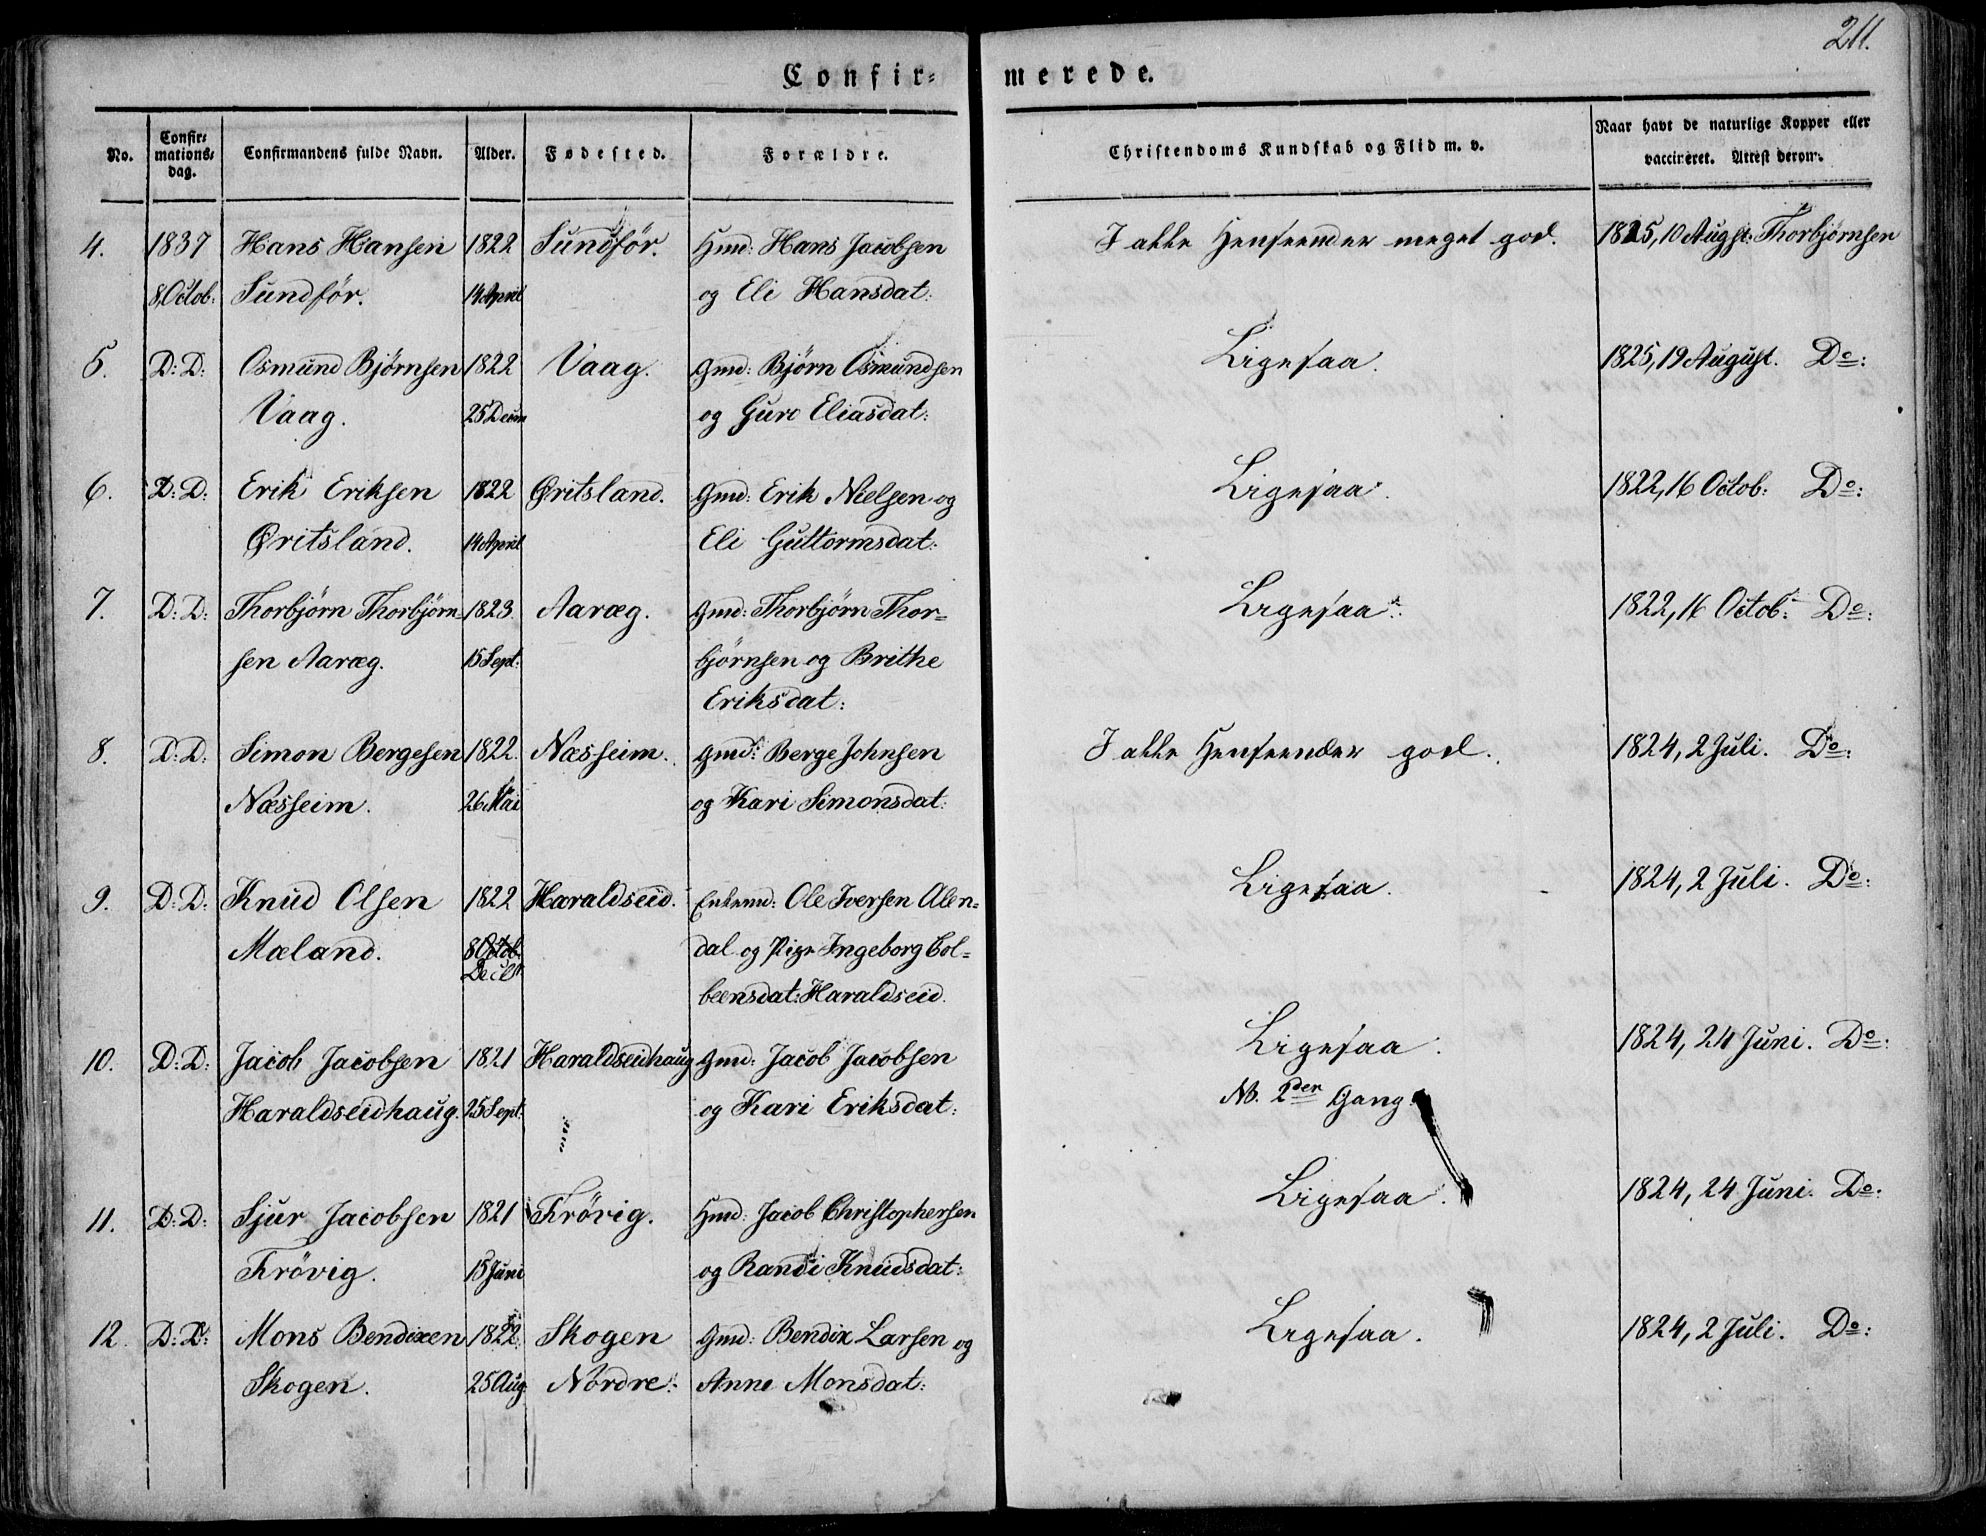 211.
Confir=merede.
No. Confir=mations=dag. Confirmandens fulde Navn. Alder. Fødested. Forældre. Christendoms Kundskab og Flid m. v. Naar havt de naturlige Kopper eller vaccineret. Attest derom.
4. 1837 Hans Hansen 1822 Sundför. Hmd: Hans Jacobsen I alle Henseender meget god. 1825, 10 Augst. Thorbjørnsen
8 Octob: Sundför. 14 April og Eli Hansdat:
5. D: D: Osmund Bjørnsen 1822 Vaag. Gmd: Bjørn Osmundsen Ligesaa. 1825, 19 August. Do:
Vaag. 25 Decem og Guro Eliasdat:
6. D: D: Erik Eriksen 1822 Øritsland. Gmd: Erik Nielsen og Ligesaa. 1822, 16 Octob: Do:
Øritsland. 14 April Eli Guttormsdat:
7. D: D: Thorbjørn Thorbjørn= 1823. Aaræg. Gmd: Thorbjørn Thor= Ligesaa. 1822, 16 Octob: Do:
sen Aaræg. 15 Sept: bjørnsen og Brithe
Eriksdat:
8. D: D: Simon Bergesen 1822. Næsheim. Gmd: Berge Johnsen I alle Henseender god. 1824, 2 Juli. Do:
Næsheim. 26 Mai og Kari Simonsdat:
9. D: D: Knud Olsen 1822 Haraldseid. Enkemd: Ole Iversen Alen= Ligesaa. 1824, 2 Juli. Do:
Mæland. 8 Octob. dal og Pige Ingeborg Col=
beensdat: Haraldseid.
10. D: D: Jacob Jacobsen 1821 Haraldseidhaug Gmd: Jacob Jacobsen Ligesaa. 1824, 24 Juni. Do:
Haraldseidhaug. 25 Sept: og Kari Eriksdat: NB. 2den Gang.
11. D: D: Sjur Jacobsen 1821 Frövig. Hmd: Jacob Christophersen Ligesaa. 1824, 24 Juni. Do:
Frövig. 15 Juni og Randi Knudsdat:
12. D: D: Mons Bendixen 1822. Skogen Gmd: Bendix Larsen og Ligesaa. 1824, 2 Juli. Do:
Skogen. 25 Aug. Nordre. Anne Monsdat: